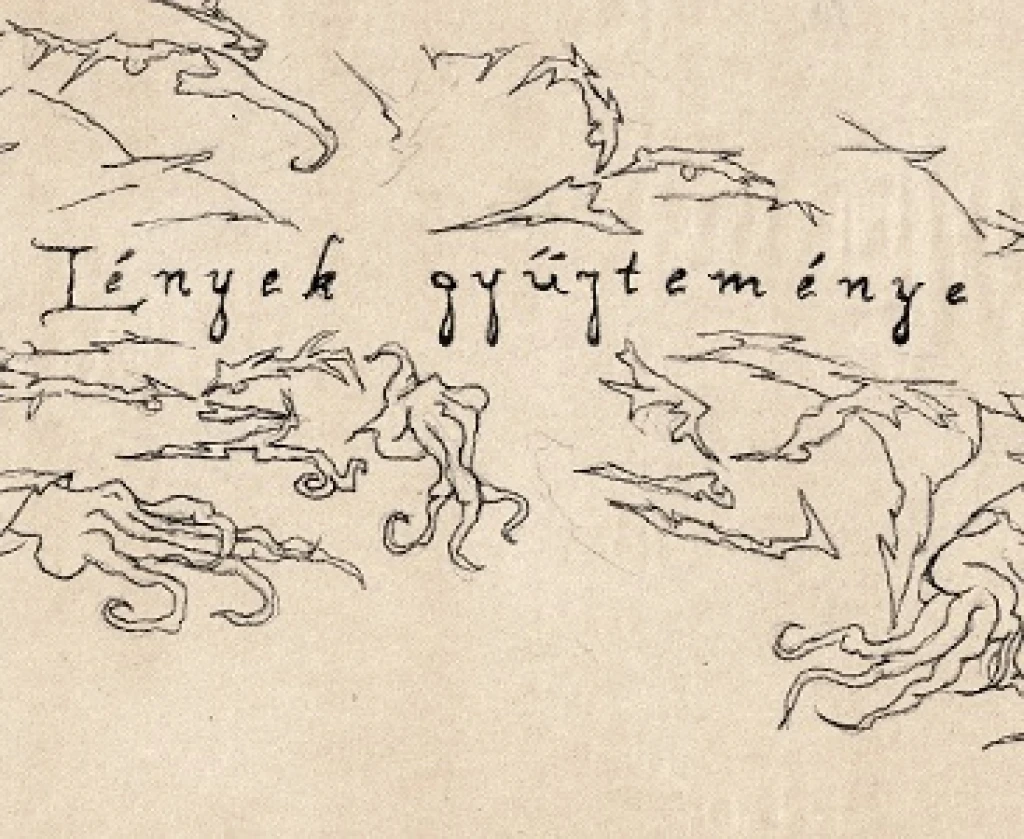 Lények gyűjteménye